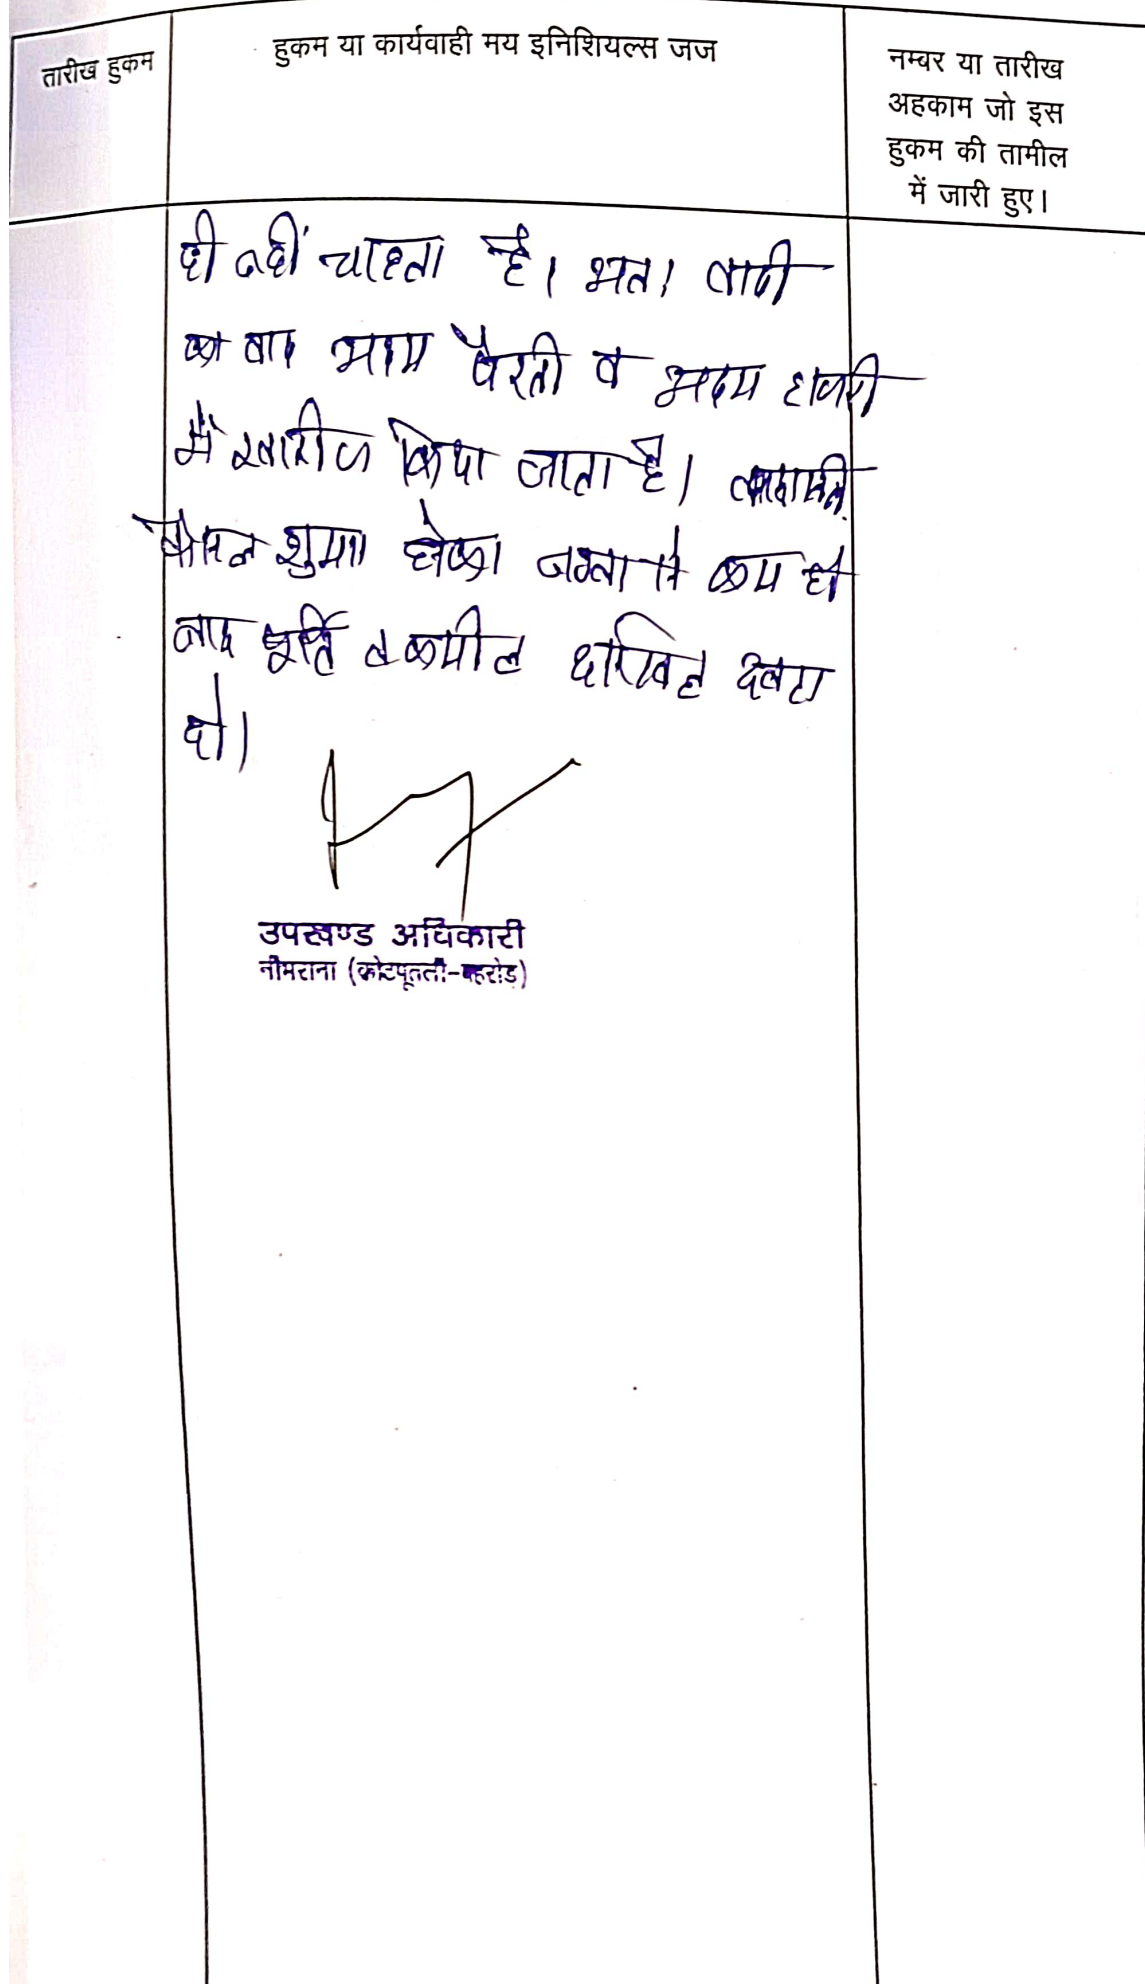 तारीख हुकम
हुकम या कार्यवाही मय इनिशियल्स जज
नम्बर या तारीख
अहकाम जो इस
हुकम की तामील
में जारी हुए।
ही नहीं चाहता है। अतः वादी
का वाद अदम पैरवी व अदम हाजरी
में खारीज किया जाता है।
फैसल शुमार होकर नम्बर से कम हो
बाद पूर्ति तकमील दाखिल दफ्तर
हो।
उपखण्ड अधिकारी
नीमराना (कोटपूतली-बहरोड़)